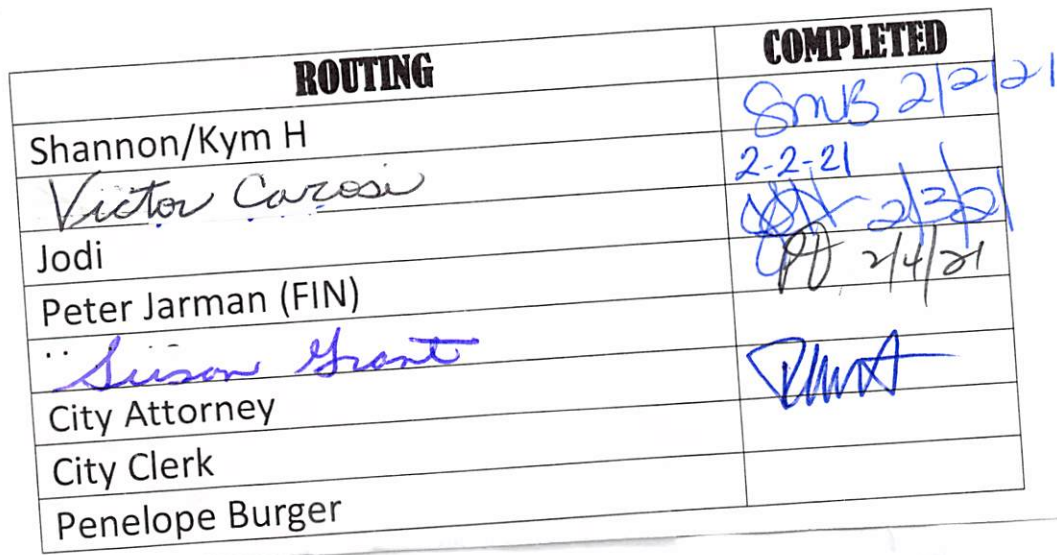 ROUTING COMPLETED
Shannon/Kym H SMB 2/2/21
Victor Carosi 2-2-21
Jodi 2/3/21
Peter Jarman (FIN) 2/4/21
Susan Grant
City Attorney
City Clerk
Penelope Burger